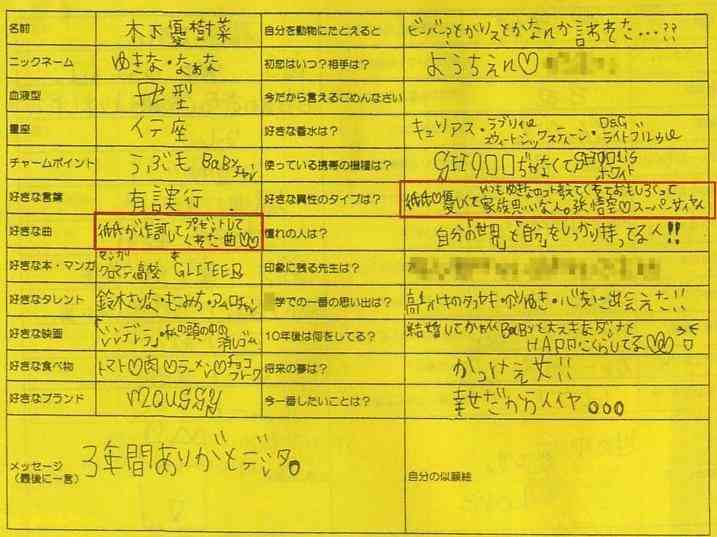 名前 木下優樹菜 自分を動物にたとえると ビーバー?とかリスとかなんか言われた…??
ニックネーム ゆきな・なぁな 初恋はいつ?相手は? ようちえん♡
血液型 型 今だから言えるごめんなさい
星座 イテ座 好きな香水は? キュリアス・ラブリィ
チャームポイント うぶ毛 BaBy 使っている携帯の機種は? じゃなくて ホワイト
好きな言葉 有誤行 好きな異性のタイプは? いつもゆきなのコト考えてくれておもしろくって
優しくて家族思いな人。孫悟空♡スーパーサイヤ人
好きな曲 が作詞してプレゼントして
くれた曲♡♡ 憧れの人は? 自分の「世界」と「自分」をしっかり持ってる人!!
好きな本・マンガ マンガ クロマティ高校 本 GLITEER 印象に残る先生は?
好きなタレント 鈴木さりな・もこみち・アムロチャン 学での一番の思い出は? に出会えた!!
好きな映画 「シンデレラ」・私の頭の中の
消しゴム 10年後は何をしてる? 結婚してかわいいBaByと大スキなダンナと
HAPPIにくらしてる♡♡
好きな食べ物 トマト♡肉♡ラーメン♡チョコ
フレーク 将来の夢は? かっけぇ女!!
好きなブランド mouggy 今一番したいことは? 幸せだからイイヤ。。。
メッセージ
(最後に一言) 3年間ありがとデシタ。 自分の似顔絵